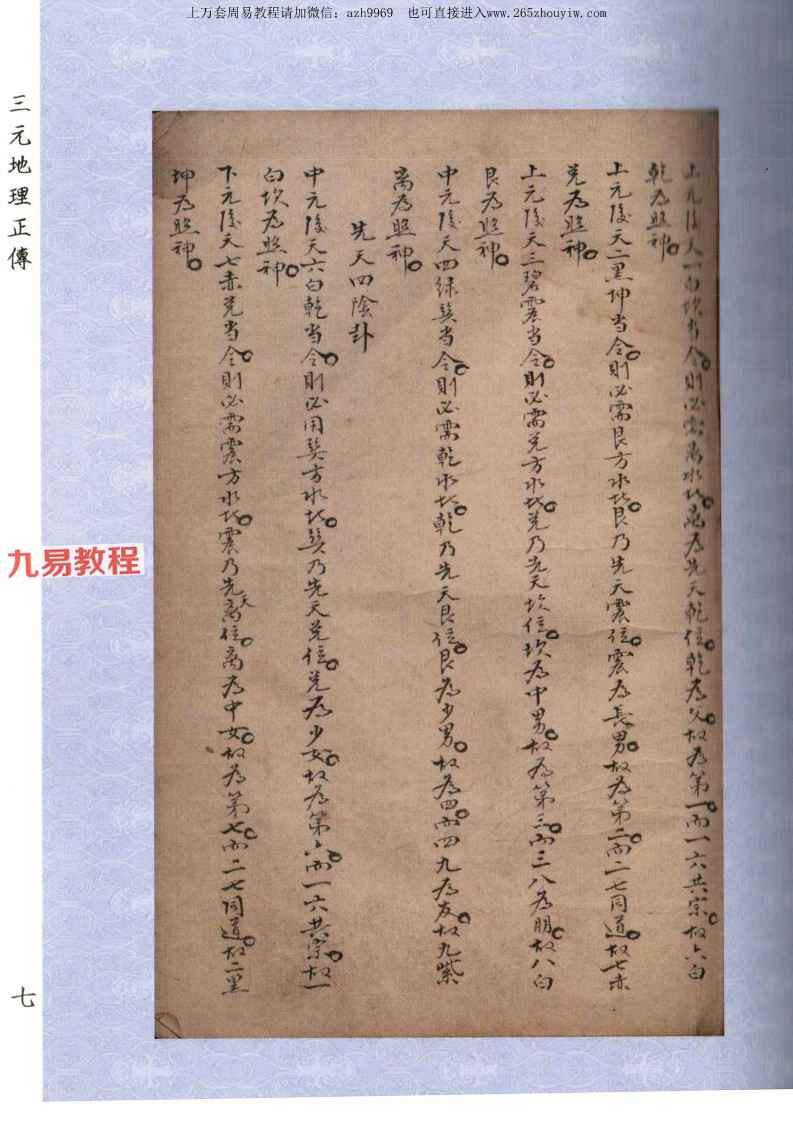 上万套周易教程请加微信：azh9969　也可直接进入www.265zhouyiw.com
三元地理正傳
上元後天一白坎当令。則必需离水北。离为先天乾位。乾为父。故为第一。而一六共宗。故六白
乾为照神。
上元後天二黑坤当令。則必需艮方水北。艮乃先天震位。震为長男。故为第二。而二七同道。故七赤
兑为照神。
上元後天三碧震当令。則必需兑方水北。兑乃先天坎位。坎为中男。故为第三。而三八为朋。故八白
艮为照神。
中元後天四绿巽当令。則必需乾水北。乾乃先天艮位。艮为少男。故为四。而四九为友。故九紫
离为照神。
先天四陰卦
中元後天六白乾当令。則必用巽方水北。巽乃先天兑位。兑为少女。故为第六。而一六共宗。故一
白坎为照神。
下元後天七赤兑当令。則必需震方水北。震乃先天离位。离为中女。故为第七。而二七同道。故二黑
坤为照神。
九易教程
七